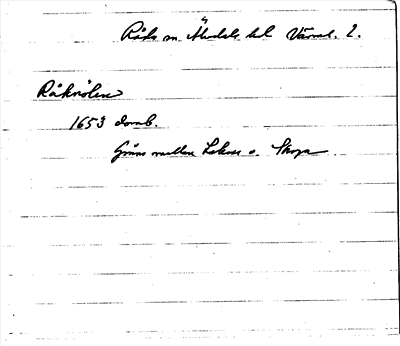 Råda sn. Älvdals hd Värml. l.
Råknölen
1653 domb.
Gräns mellan Lakene o. Skoga